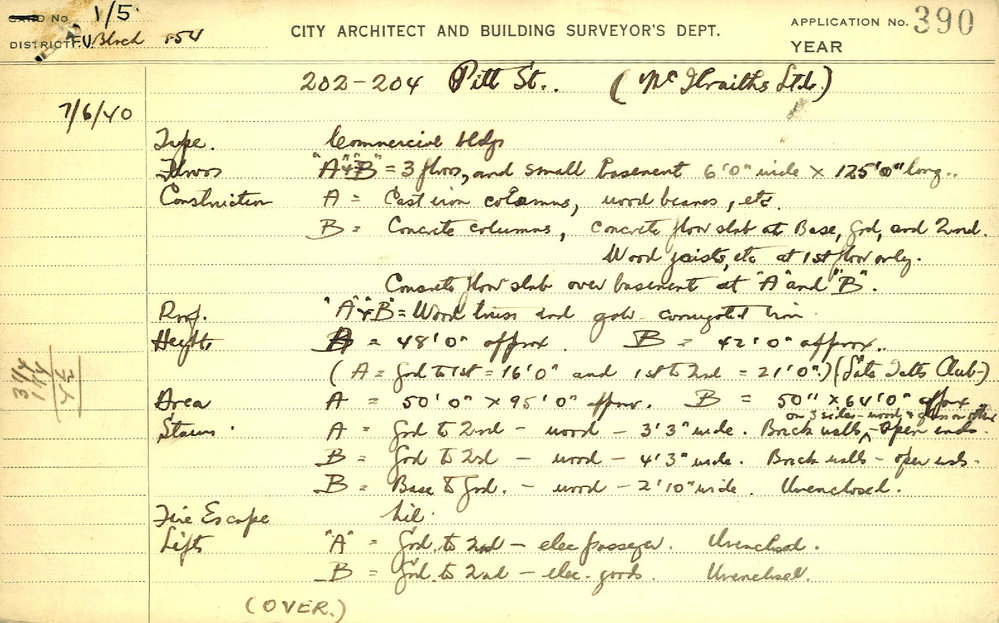 CARD No 1/5
CITY ARCHITECT AND BUILDING SURVEYOR'S DEPT.
APPLICATION No. 390
DISTRICT F.V. Block 154
YEAR
202-204 Pitt St.. (McIlraiths Ltd.)
7/6/40
Type. Commercial bldg
Floors "A & B" = 3 floors, and small basement 6'0" wide × 125'0" long..
Construction A = Cast iron columns, wood beams, etc.
B = Concrete columns, concrete floor slab at Base, Grd, and 2nd.
Wood joists, etc at 1st floor only.
Concrete floor slab over basement at "A" and "B".
Roof. "A & B" = Wood truss and galv. corrugated iron.
Heights A = 48'0" approx. B = 42'0" approx..
(A = Grd to 1st = 16'0" and 1st to 2nd = 21'0") (Late Club-)
Area A = 50'0" × 95'0" approx. B = 50" × 64'0" approx
on 3 sides - wood & glass on other
Stairs. A = Grd to 2nd - wood - 3'3" wide. Brick walls - open ends.
B = Grd to 2nd - wood - 4'3" wide. Brick walls - open ends.
B = Base to Grd. - wood - 2'10" wide. Unenclosed.
Fire Escape Nil.
Lifts "A" = Grd. to 2nd - elec passenger. Unenclosed.
B = Grd. to 2nd - elec. goods. Unenclosed.
(OVER.)